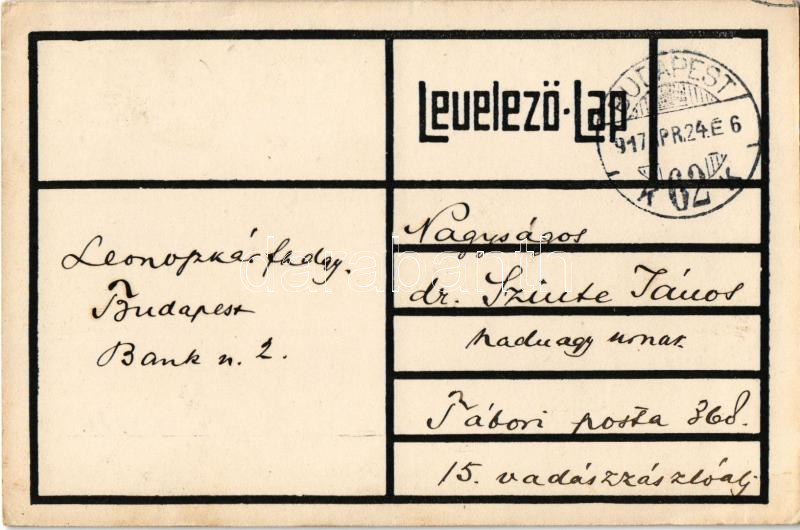 Levelező-Lap
BUDAPEST
917 APR.24.E 6
62
Budapest
Bank u. 2.
Nagyságos
dr. Szinte János
hadnagy urnak
Tábori posta 368.
15. vadászzászlóalj
darabanth